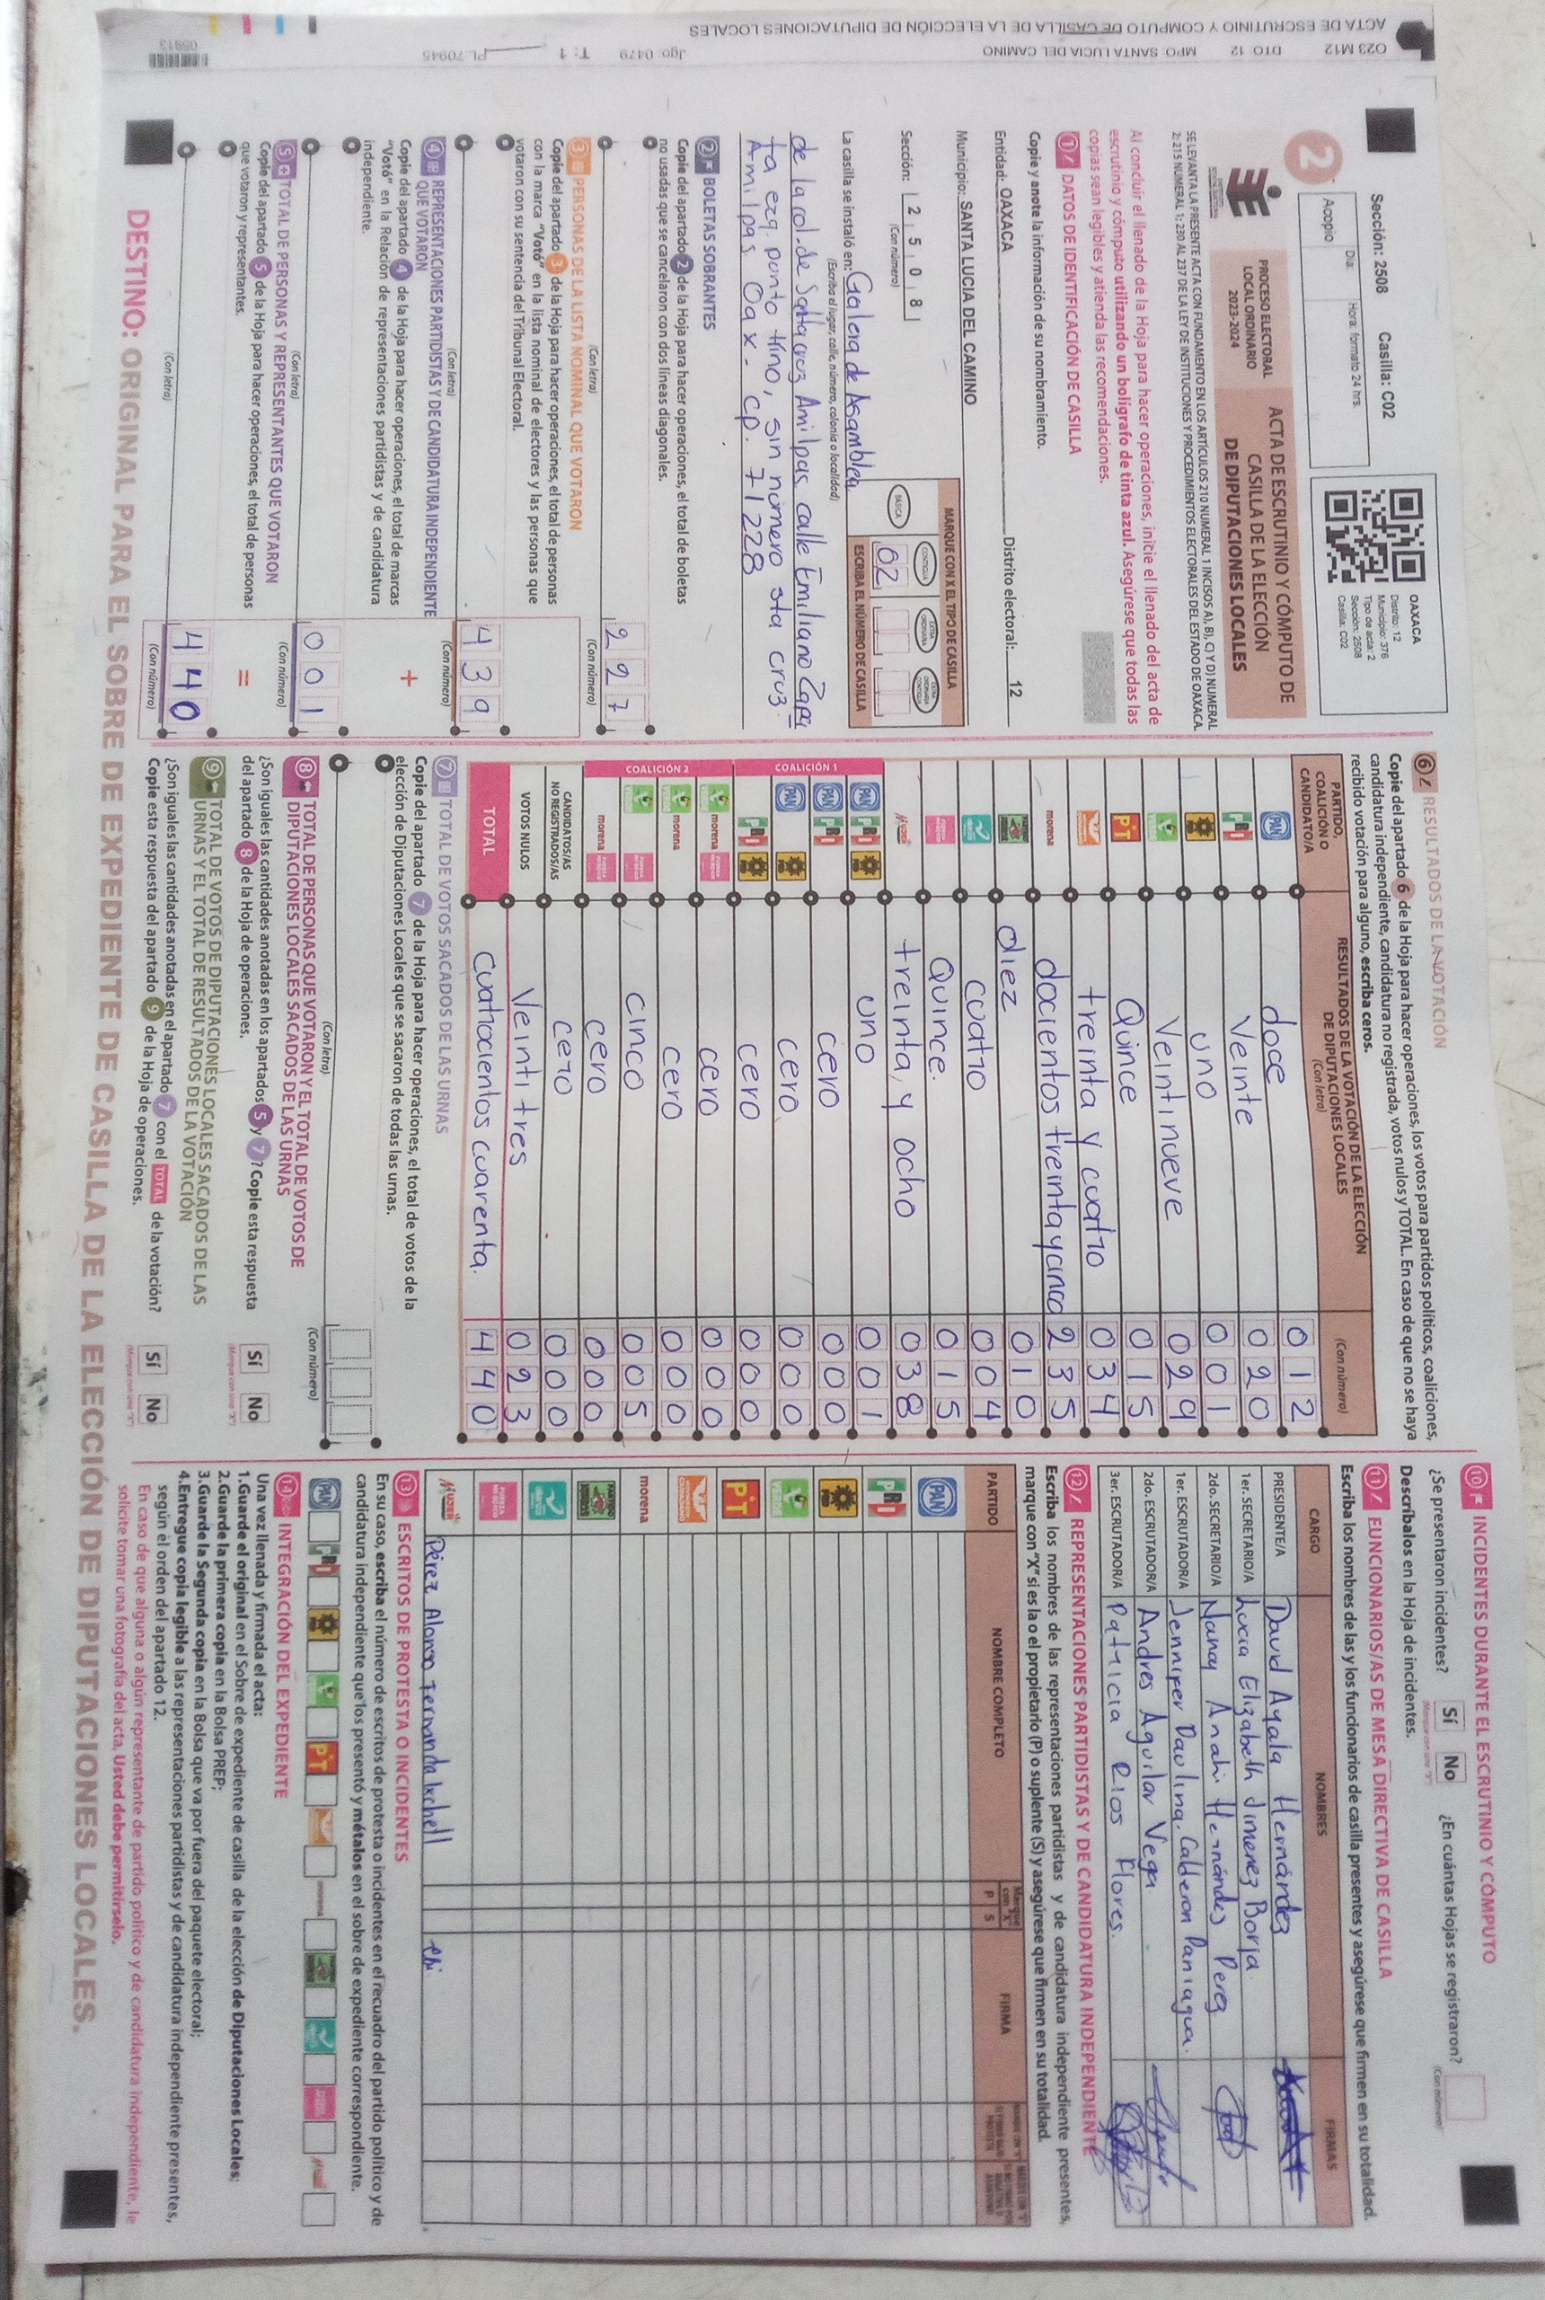 Sección: 2508 Casilla: C02
Día: Hora: formato 24 hrs.
Acopio
2
OAXACA
Distrito: 12
Municipio: 376
Tipo de acta: 2
Sección: 2508
Casilla: C02
PROCESO ELECTORAL
LOCAL ORDINARIO
2023-2024
ACTA DE ESCRUTINIO Y CÓMPUTO DE
CASILLA DE LA ELECCIÓN
DE DIPUTACIONES LOCALES
SE LEVANTA LA PRESENTE ACTA CON FUNDAMENTO EN LOS ARTÍCULOS 210 NUMERAL 1 INCISOS A), B), C) Y D) NUMERAL
2; 215 NUMERAL 1; 230 AL 237 DE LA LEY DE INSTITUCIONES Y PROCEDIMIENTOS ELECTORALES DEL ESTADO DE OAXACA.
Al concluir el llenado de la Hoja para hacer operaciones, inicie el llenado del acta de
escrutinio y cómputo utilizando un bolígrafo de tinta azul. Asegúrese que todas las
copias sean legibles y atienda las recomendaciones.
1 DATOS DE IDENTIFICACIÓN DE CASILLA
Copie y anote la información de su nombramiento.
Entidad: OAXACA Distrito electoral: 12
Municipio: SANTA LUCIA DEL CAMINO
Sección: 2 5 0 8
(Con número)
MARQUE CON X EL TIPO DE CASILLA
BÁSICA CONTIGUA EXTRAORDINARIA EXTRAORDINARIA CONTIGUA
02
ESCRIBA EL NÚMERO DE CASILLA
La casilla se instaló en: Galera de Asamblea
(Escriba el lugar, calle, número, colonia o localidad)
de la col. de Santa cruz Amilpas calle Emiliano Zapa
ta ezq. punto trino, sin número sta cruz
Amilpas Oax. cp. 71228
2 BOLETAS SOBRANTES
Copie del apartado 2 de la Hoja para hacer operaciones, el total de boletas
no usadas que se cancelaron con dos líneas diagonales.
227
(Con letra) (Con número)
3 PERSONAS DE LA LISTA NOMINAL QUE VOTARON
Copie del apartado 3 de la Hoja para hacer operaciones, el total de personas
con la marca “Votó” en la lista nominal de electores y las personas que
votaron con su sentencia del Tribunal Electoral.
439
(Con letra) (Con número)
4 REPRESENTACIONES PARTIDISTAS Y DE CANDIDATURA INDEPENDIENTE
QUE VOTARON
+
Copie del apartado 4 de la Hoja para hacer operaciones, el total de marcas
“Votó” en la Relación de representaciones partidistas y de candidatura
independiente.
001
(Con letra) (Con número)
5 TOTAL DE PERSONAS Y REPRESENTANTES QUE VOTARON
=
Copie del apartado 5 de la Hoja para hacer operaciones, el total de personas
que votaron y representantes.
440
(Con letra) (Con número)
6 RESULTADOS DE LA VOTACIÓN
Copie del apartado 6 de la Hoja para hacer operaciones, los votos para partidos políticos, coaliciones,
candidatura independiente, candidatura no registrada, votos nulos y TOTAL. En caso de que no se haya
recibido votación para alguno, escriba ceros.
PARTIDO, COALICIÓN O CANDIDATO/A
RESULTADOS DE LA VOTACIÓN DE LA ELECCIÓN DE DIPUTACIONES LOCALES
(Con letra) (Con número)
PAN doce 012
PRI Veinte 020
PRD uno 001
VERDE Veintinueve 029
PT Quince 015
treinta y cuatro 034
morena docientos treinta y cinco 235
diez 010
cuatro 004
Quince. 015
Mujer treinta, y ocho 038
COALICIÓN 1
PAN PRI PRD uno 001
PAN PRI cero 000
PAN PRD cero 000
PRI PRD cero 000
COALICIÓN 2
VERDE morena FUERZA cero 000
VERDE morena cero 000
VERDE FUERZA cinco 005
morena FUERZA cero 000
CANDIDATOS/AS NO REGISTRADOS/AS cero 000
VOTOS NULOS Veinti tres 023
TOTAL Cuatrocientos cuarenta. 440
7 TOTAL DE VOTOS SACADOS DE LAS URNAS
Copie del apartado 7 de la Hoja para hacer operaciones, el total de votos de la
elección de Diputaciones Locales que se sacaron de todas las urnas.
(Con letra) (Con número)
8 TOTAL DE PERSONAS QUE VOTARON Y EL TOTAL DE VOTOS DE
DIPUTACIONES LOCALES SACADOS DE LAS URNAS
¿Son iguales las cantidades anotadas en los apartados 5 y 7? Copie esta respuesta
del apartado 8 de la Hoja de operaciones. Sí No
9 TOTAL DE VOTOS DE DIPUTACIONES LOCALES SACADOS DE LAS
URNAS Y EL TOTAL DE RESULTADOS DE LA VOTACIÓN
¿Son iguales las cantidades anotadas en el apartado 7 con el TOTAL de la votación?
Copie esta respuesta del apartado 9 de la Hoja de operaciones. Sí No
10 INCIDENTES DURANTE EL ESCRUTINIO Y CÓMPUTO
¿Se presentaron incidentes? Sí No ¿En cuántas Hojas se registraron?
(Con número)
Descríbalos en la Hoja de incidentes.
11 FUNCIONARIOS/AS DE MESA DIRECTIVA DE CASILLA
Escriba los nombres de las y los funcionarios de casilla presentes y asegúrese que firmen en su totalidad.
CARGO NOMBRES FIRMAS
PRESIDENTE/A David Ayala Hernández
1er. SECRETARIO/A Lucia Elizabeth Jimenez Borja
2do. SECRETARIO/A Nancy Anahi Hernández Perez
1er. ESCRUTADOR/A Jennifer Paulina. Calderon Paniagua.
2do. ESCRUTADOR/A Andres Aguilar Vega
3er. ESCRUTADOR/A Patricia Rios Flores.
12 REPRESENTACIONES PARTIDISTAS Y DE CANDIDATURA INDEPENDIENTE
Escriba los nombres de las representaciones partidistas y de candidatura independiente presentes,
marque con “X” si es la o el propietario (P) o suplente (S) y asegúrese que firmen en su totalidad.
PARTIDO NOMBRE COMPLETO P S FIRMA
PAN
PRI
PRD
VERDE
PT
morena
Mujer Pérez Alonso Fernanda Ixchell
13 ESCRITOS DE PROTESTA O INCIDENTES
En su caso, escriba el número de escritos de protesta o incidentes en el recuadro del partido político y de
candidatura independiente que los presentó y métalos en el sobre de expediente correspondiente.
PAN PRI PRD VERDE PT morena
14 INTEGRACIÓN DEL EXPEDIENTE
Una vez llenada y firmada el acta:
1.Guarde el original en el Sobre de expediente de casilla de la elección de Diputaciones Locales;
2.Guarde la primera copia en la Bolsa PREP;
3.Guarde la Segunda copia en la Bolsa que va por fuera del paquete electoral;
4.Entregue copia legible a las representaciones partidistas y de candidatura independiente presentes,
según el orden del apartado 12.
En caso de que alguna o algún representante de partido político y de candidatura independiente, le
solicite tomar una fotografía del acta, Usted debe permitírselo.
DESTINO: ORIGINAL PARA EL SOBRE DE EXPEDIENTE DE CASILLA DE LA ELECCIÓN DE DIPUTACIONES LOCALES.
O23 M12 DTO 12 MPO SANTA LUCIA DEL CAMINO Jgo. 0479 T: 1 PL.70945
ACTA DE ESCRUTINIO Y COMPUTO DE CASILLA DE LA ELECCIÓN DE DIPUTACIONES LOCALES
05913